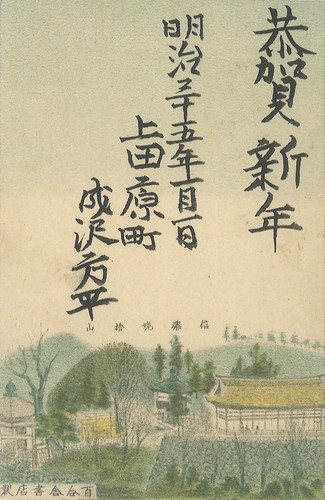 恭賀新年
明治三十五年一月一日
上田原町
成沢
信濃姨捨山
書店製